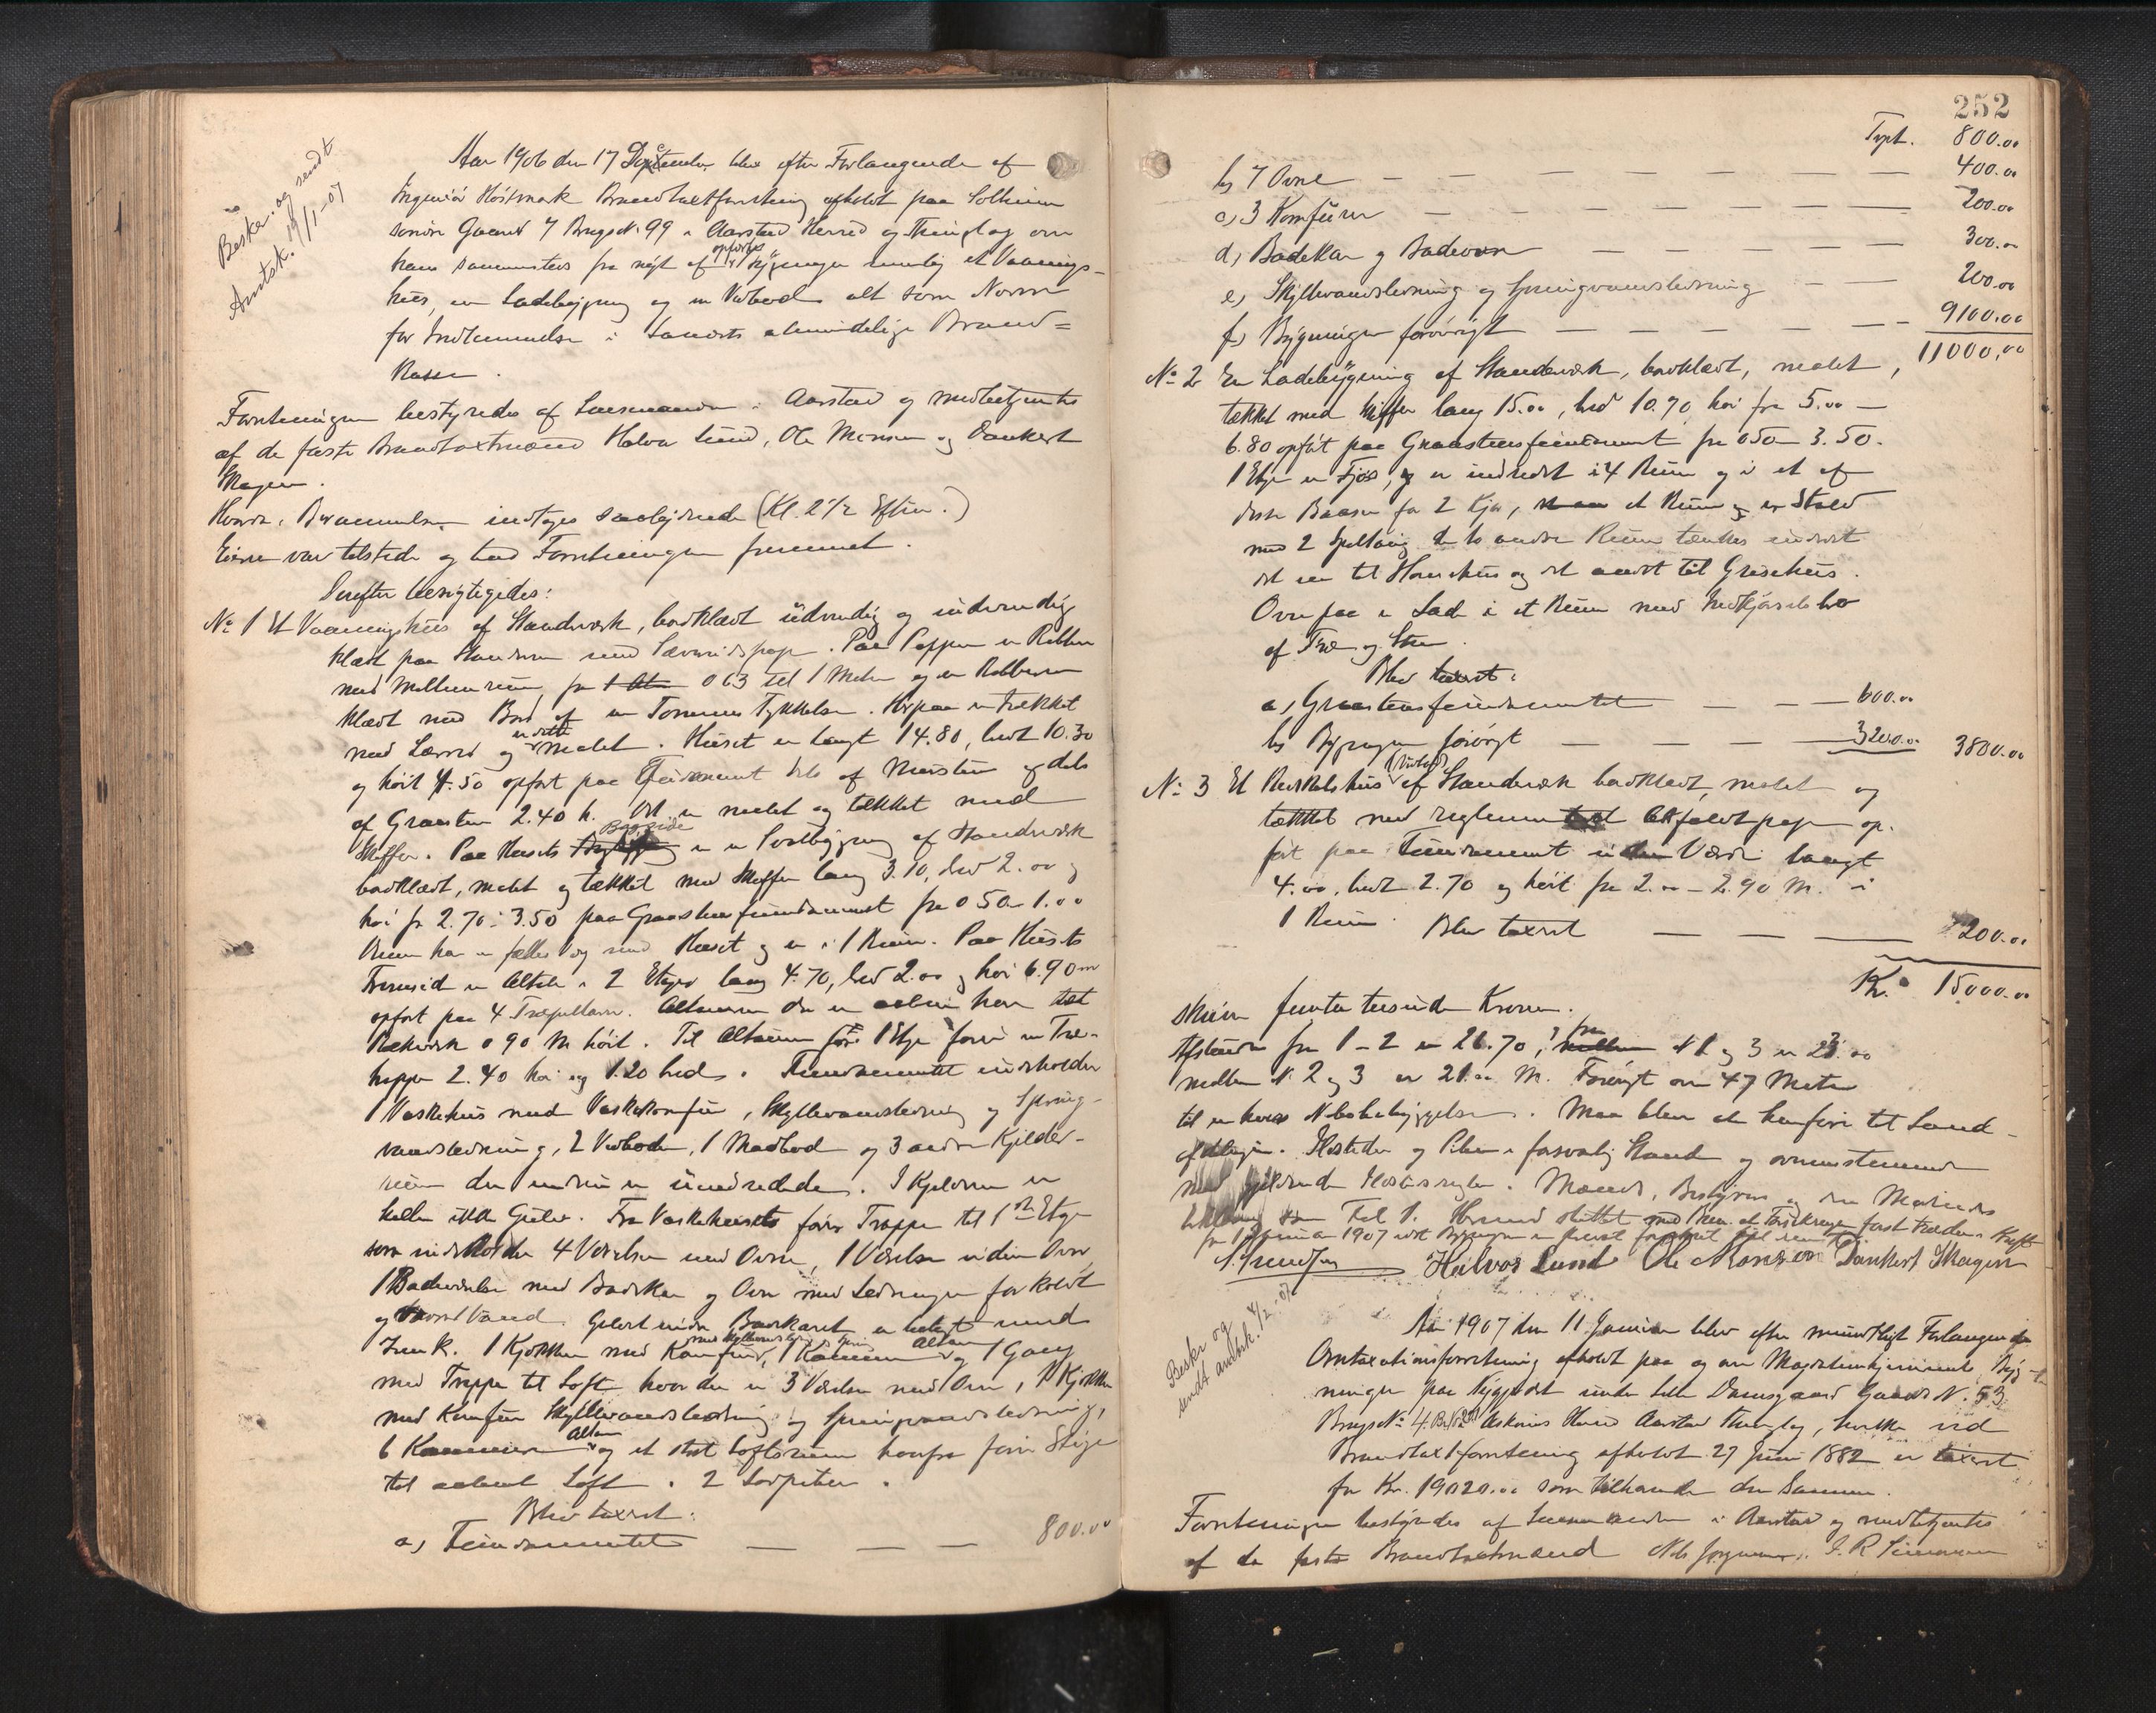 Beskr. og sendt
Amtsk. 19/1-07
Aar 1906 den 17 December blev efter Forlangende af
Ingeniør Høstmark Brandtaxtforretning afholdt paa Solheim
søndre Gaards N 7 Brugs N. 99 i Aarstad Herred og Thinglag over
ham sammesteds fra nyt af opførte Bygninger nemlig et Vaanings-
hus, en Ladebygning og en Vedbod alt som Norm
for Indlemmelse i Landets almindelige Brand=
kasse.
Forretningen bestyredes af Lensmanden i Aarstad og medbetjentes
af de faste Brandtaxtmænd Halvor Lund, Ole Monsen og Dankert
Skagen.
Hvorda Berammelsen indtoges saalydende (Kl. 2 1/2 Efterm.)
Eieren var tilstede og bad Forretningen fremmet.
Derefter besigtigedes:
No 1 Et Vaaningshus af Standværk, bordklædt udvendig og indvendig
klædt paa Standeren med Læreridspap. Paa Pappen er Ribber
med Mellemrum fra 0 63 til 1 Meter og er Ribberne
klædt med Bord af en Tommes Tykkelse. Herpaa er trækket
med Lærred og er dette malet. Huset er langt 14.80, bredt 10.30
og høit 4.50 opført paa Fundament dels af Mursten og dels
af Graasten 2.40 h. Det er malet og tækket med
Skiffer. Paa Husets Bagside er en Portbygning af Standværk
bordklædt, malet og tækket med Skiffer lang 3.10, bred 2.00 og
høi fr 2.70-3.50 paa Graastensfundament fra 0 50-1.00
Rum har er fælles og med Huset og er i 1 Rum. Paa Husets
Fremsid er Altan i 2 Etager lang 4.70, bred 2.00 og høi 6.90 m
opført paa 4 Træpillarer. Altanen der er aaben har tæt
Rækværk 0 90 M høit. Til Altanen fører i 1 Etge forøvr en Træ-
trappe 2.40 høi og 1.20 bred. Fundamentet indeholder
1 Vaskehus med Vaskekomfur, Skyllevandsledning og Spring-
vandsledning, 2 Vedboder, 1 Madbod og 3 andre Kjelder-
rum der endnu er uindredede. I Kjelderen er
heller ikke Gulve. Fra Vaskehuset fører Trappe til 1ste Etage
som indeholder 4 Værelser med Ovne, 1 Værelse uden Ovn
1 Badeværelse med Badekar og Ovn med Ledninger for koldt
og varmt Vand. Gulvet under Badekaret er belagt med
Zink. 1 Kjøkken med Komfur, med Skyllevandsledn. og Spring 1 Kammer Altan og 1 Gang
med Trappe til Loft hvor der er 3 Værelser med Ovn, 1 Kjøkken
med Komfur Skyllevandsledning og Springvandsledning,
6 Kammere Altan og et stort Loftsrum hvorfra fører Stige
til aabent Loft. 2 Lodpiber.
Blev taxeret:
a) Fundamentet — — — 800.00
252
Trpt. 800.00
b) 7 Ovne — — — 400.00
c) 3 Komfurer — — — 200.00
d) Badekar og Badeovn — — — 300.00
e) Skyllevandsledning og Springvandsledning — — 200.00
f) Bygningen forøvrigt — — — 9100.00
11000,00
No 2 En Ladebygning af Standværk, bordklædt, malet,
tækket med Skiffer lang 15.00, bred 10.70, høi fra 5.00 —
6.80 opført paa Graastensfundament fra 0 50-3.50.
1 Etge er Fjøs, og er indredet i 4 Rum og i et af
disse Baaser for 2 Kjør, et Rum og er Stald
med 2 Spiltoug de to andre Rum tænkes indredet
det ene til Hønsehus og det andet til Grisehus.
Ovenpaa er Lade i et Rum med Indkjørselsbro
af Træ og Sten.
Blev taxeret:
a) Graastensfundamentet — — — 600.00
b) Bygningen forøvrigt — — — 3200.00 3800.00
No 3 Et Redskabshus (Vedbod) af Standværk bordklædt, malet og
tækket med reglementeret Asfaltpap op-
ført paa Fundament uden Værdi langt
4.00, bredt 2.70 og høit fra 2.00-2.90 M. i
1 Rum. Blev taxeret — — — 200.00
Kr. 15000.00
skriver femten tusinde Kroner.
Afstanden fra 1-2 er 26.70, fra N 1 og 3 er 23.00
mellem N 2 og 3 er 21.00 M. Forøvrigt over 47 Meter
til enhver Nabobebyggelse. Maa blive at henføre til Land-
afdelingen. Ildsteder og Piber i forsvarlig Stand og overensstemmende
med gjældende Ildstedsregler. Mænds, Bestyrers og den Mælendes
Erklæring som Fol 1. Hermed sluttet med Bem. at Forsikringen først træder i Kraft
fra 1 Januar 1907 idet Bygningen er først
Halvor Lund Ole Monsen Dankert Skagen
Beskr og
sendt amtsk. 4/2-07
Aar 1907 den 11 Januar blev efter mundtligt Forlangende
Omtaxationsforretning afholdt paa og over Byg-
ninger paa Nygaard under Lille Damsgaard Gaards N. 53
Brugs No 4, Askøens Herred Aarstad Thinglag, hvilke ved
Brandtaxtforretning afholdt 27 Juni 1882 er taxeret
for Kr. 19020.00 som tilhørende den Samme.
Forretningen bestyredes af Lensmanden i Aarstad og medbetjentes
af de faste Brandtaxtmænd Nils J. R.